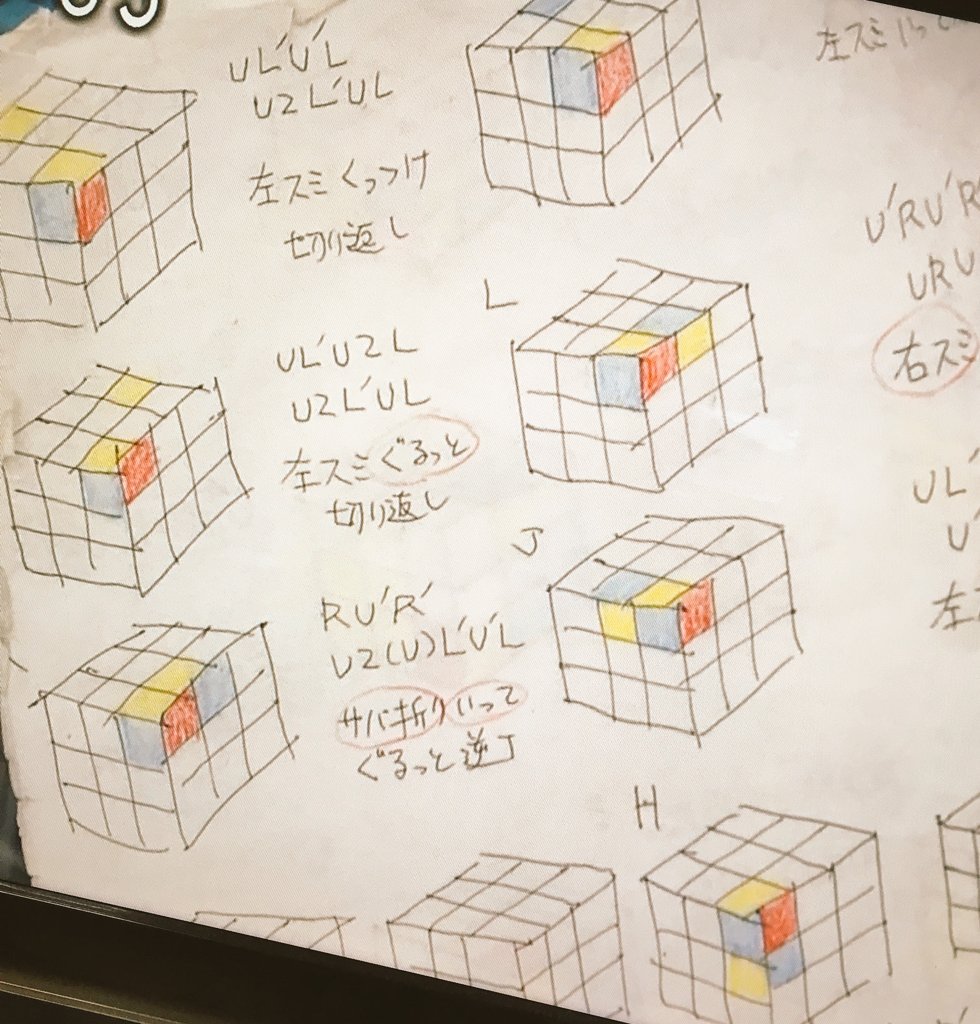 UL'U'L
U2L'UL
左スミくっつけ
切り返し
左スミ
U'RU'R
URU
右スミ
L
UL'U2L
U2L'UL
左スミぐるっと
切り返し
UL'
U'
左
J
RU'R'
U2(U)L'U'L
サバ折りいって
ぐるっと逆J
H